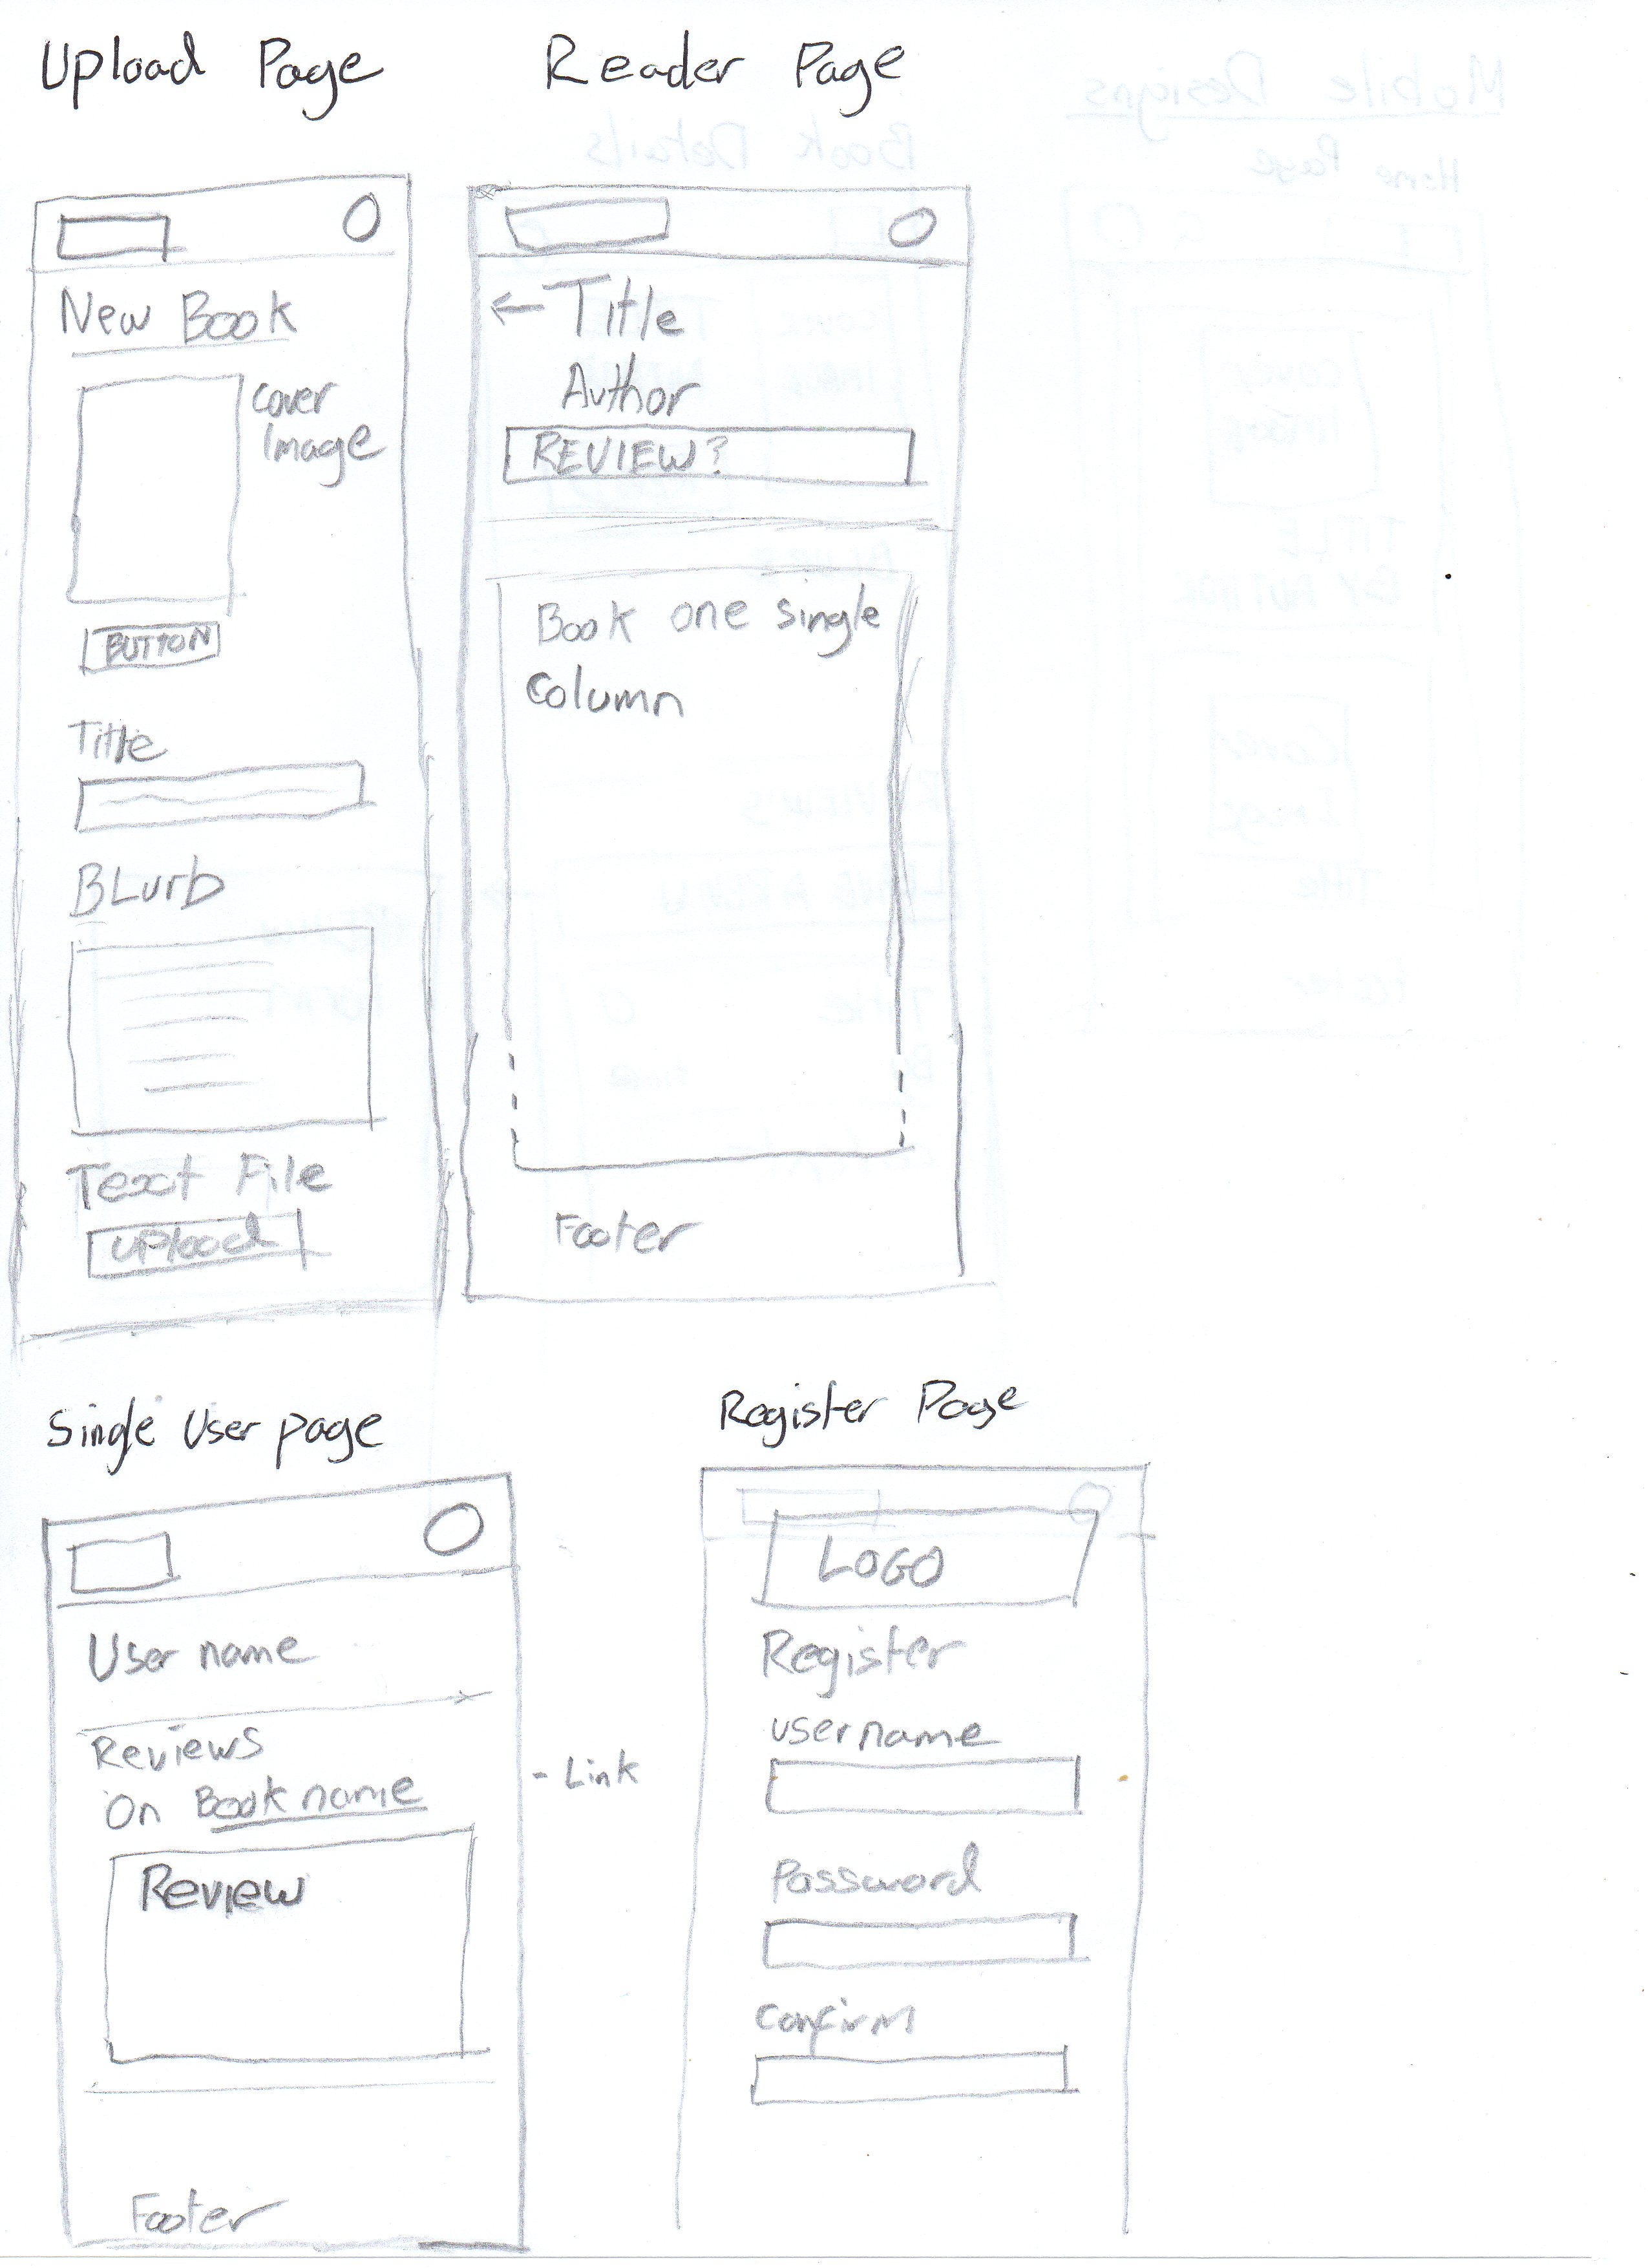 Upload Page
New Book
cover
Image
BUTTON
Title
BLurb
Text File
upload
Reader Page
Title
Author
REVIEW?
Book one single
column
Footer
Single User page
User name
Reviews
On Book name
- Link
Review
Footer
Register Page
LOGO
Register
username
Password
confirm
Mobile Designs
Home Page
Book Details